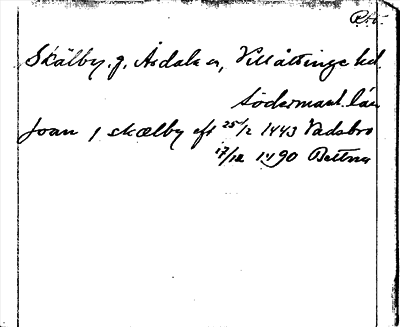 Skälby, g. Årdala sn, Villåttinge hd
Södermanl. län
Joan j skælby eft 25/2 1443 Vadsbro
17/12 1490 Bettna